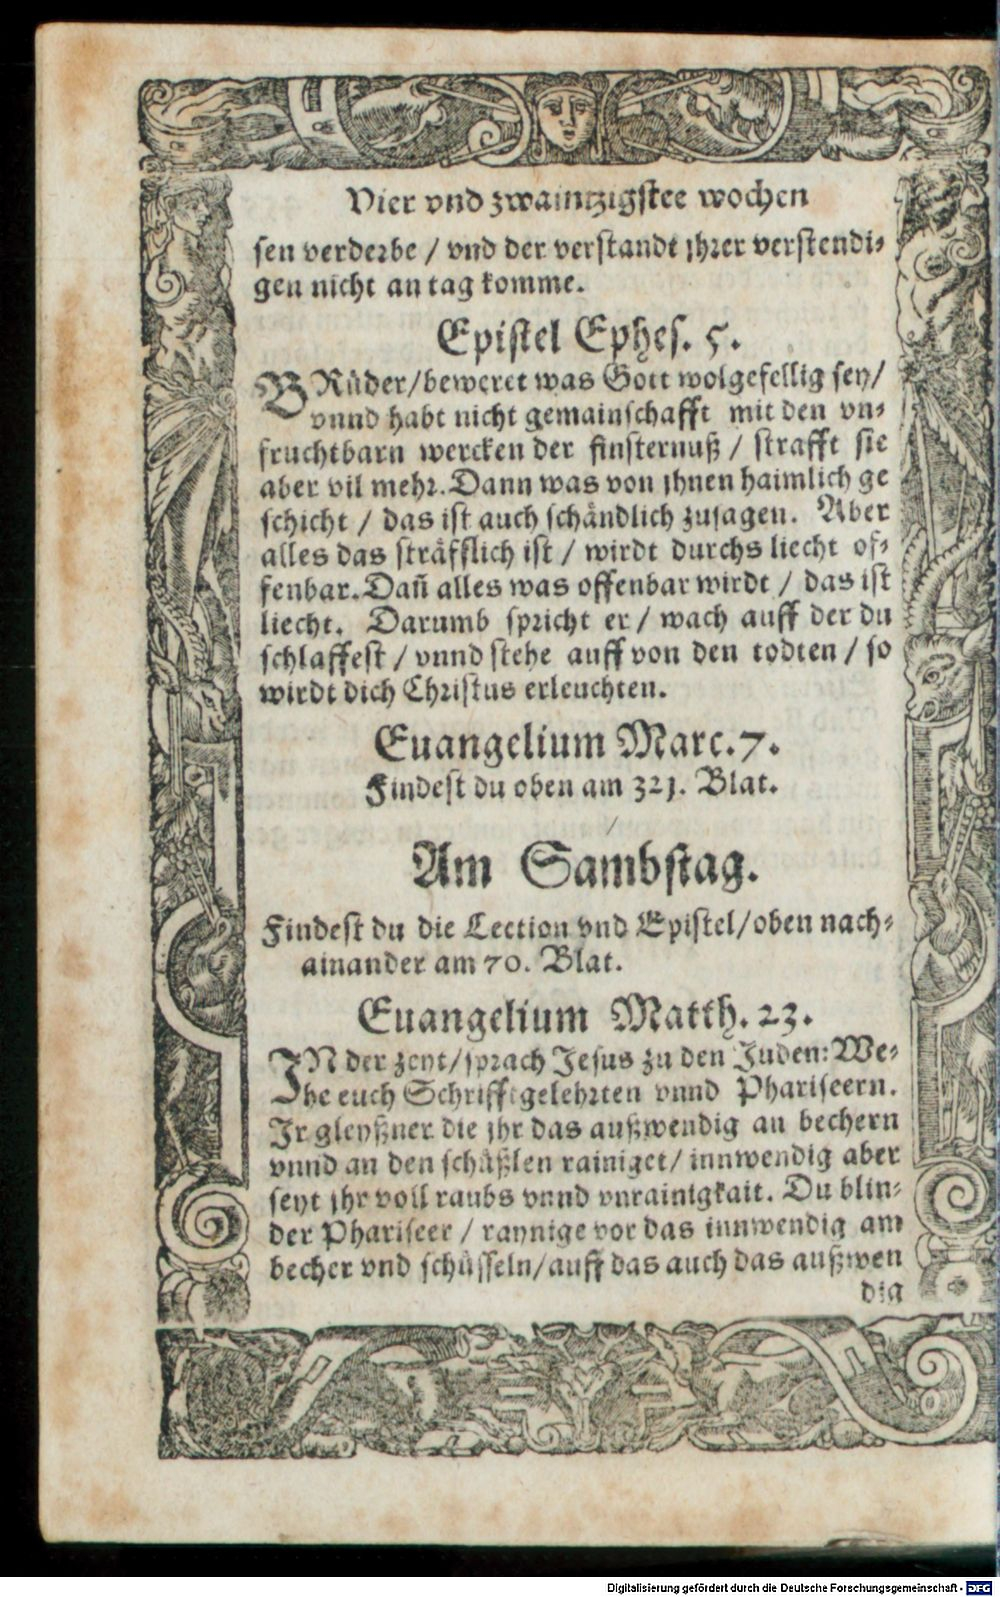 Vier vnd zwaintzigstee wochen
sen verderbe / vnd der verstandt jhrer verstendi⸗
gen nicht an tag komme.
Epistel Ephes. 5.
BRüder/beweret was Gott wolgefellig sey/
vnnd habt nicht gemainschafft mit den vn⸗
fruchtbarn wercken der finsternuß / strafft sie
aber vil mehr. Dann was von jhnen haimlich ge
schicht / das ist auch schändlich zusagen. Aber
alles das sträfflich ist / wirdt durchs liecht of⸗
fenbar. Dañ alles was offenbar wirdt / das ist
liecht. Darumb spricht er / wach auff der du
schlaffest / vnnd stehe auff von den todten / so
wirdt dich Christus erleuchten.
Euangelium Marc. 7.
Findest du oben am 321. Blat.
Am Sambstag.
Findest du die Lection vnd Epistel/oben nach⸗
ainander am 70. Blat.
Euangelium Matth. 23.
IN der zeyt/sprach Jesus zu den Juden: We⸗
he euch Schrifftgelehrten vnnd Phariseern.
Jr gleyßner die jhr das außwendig an bechern
vnnd an den schüßlen rainiget/ innwendig aber
seyt jhr voll raubs vnnd vnrainigkait. Du blin⸗
der Phariseer / raynige vor das innwendig am
becher vnd schüsseln/auff das auch das außwen
dig
Digitalisierung gefördert durch die Deutsche Forschungsgemeinschaft - DFG